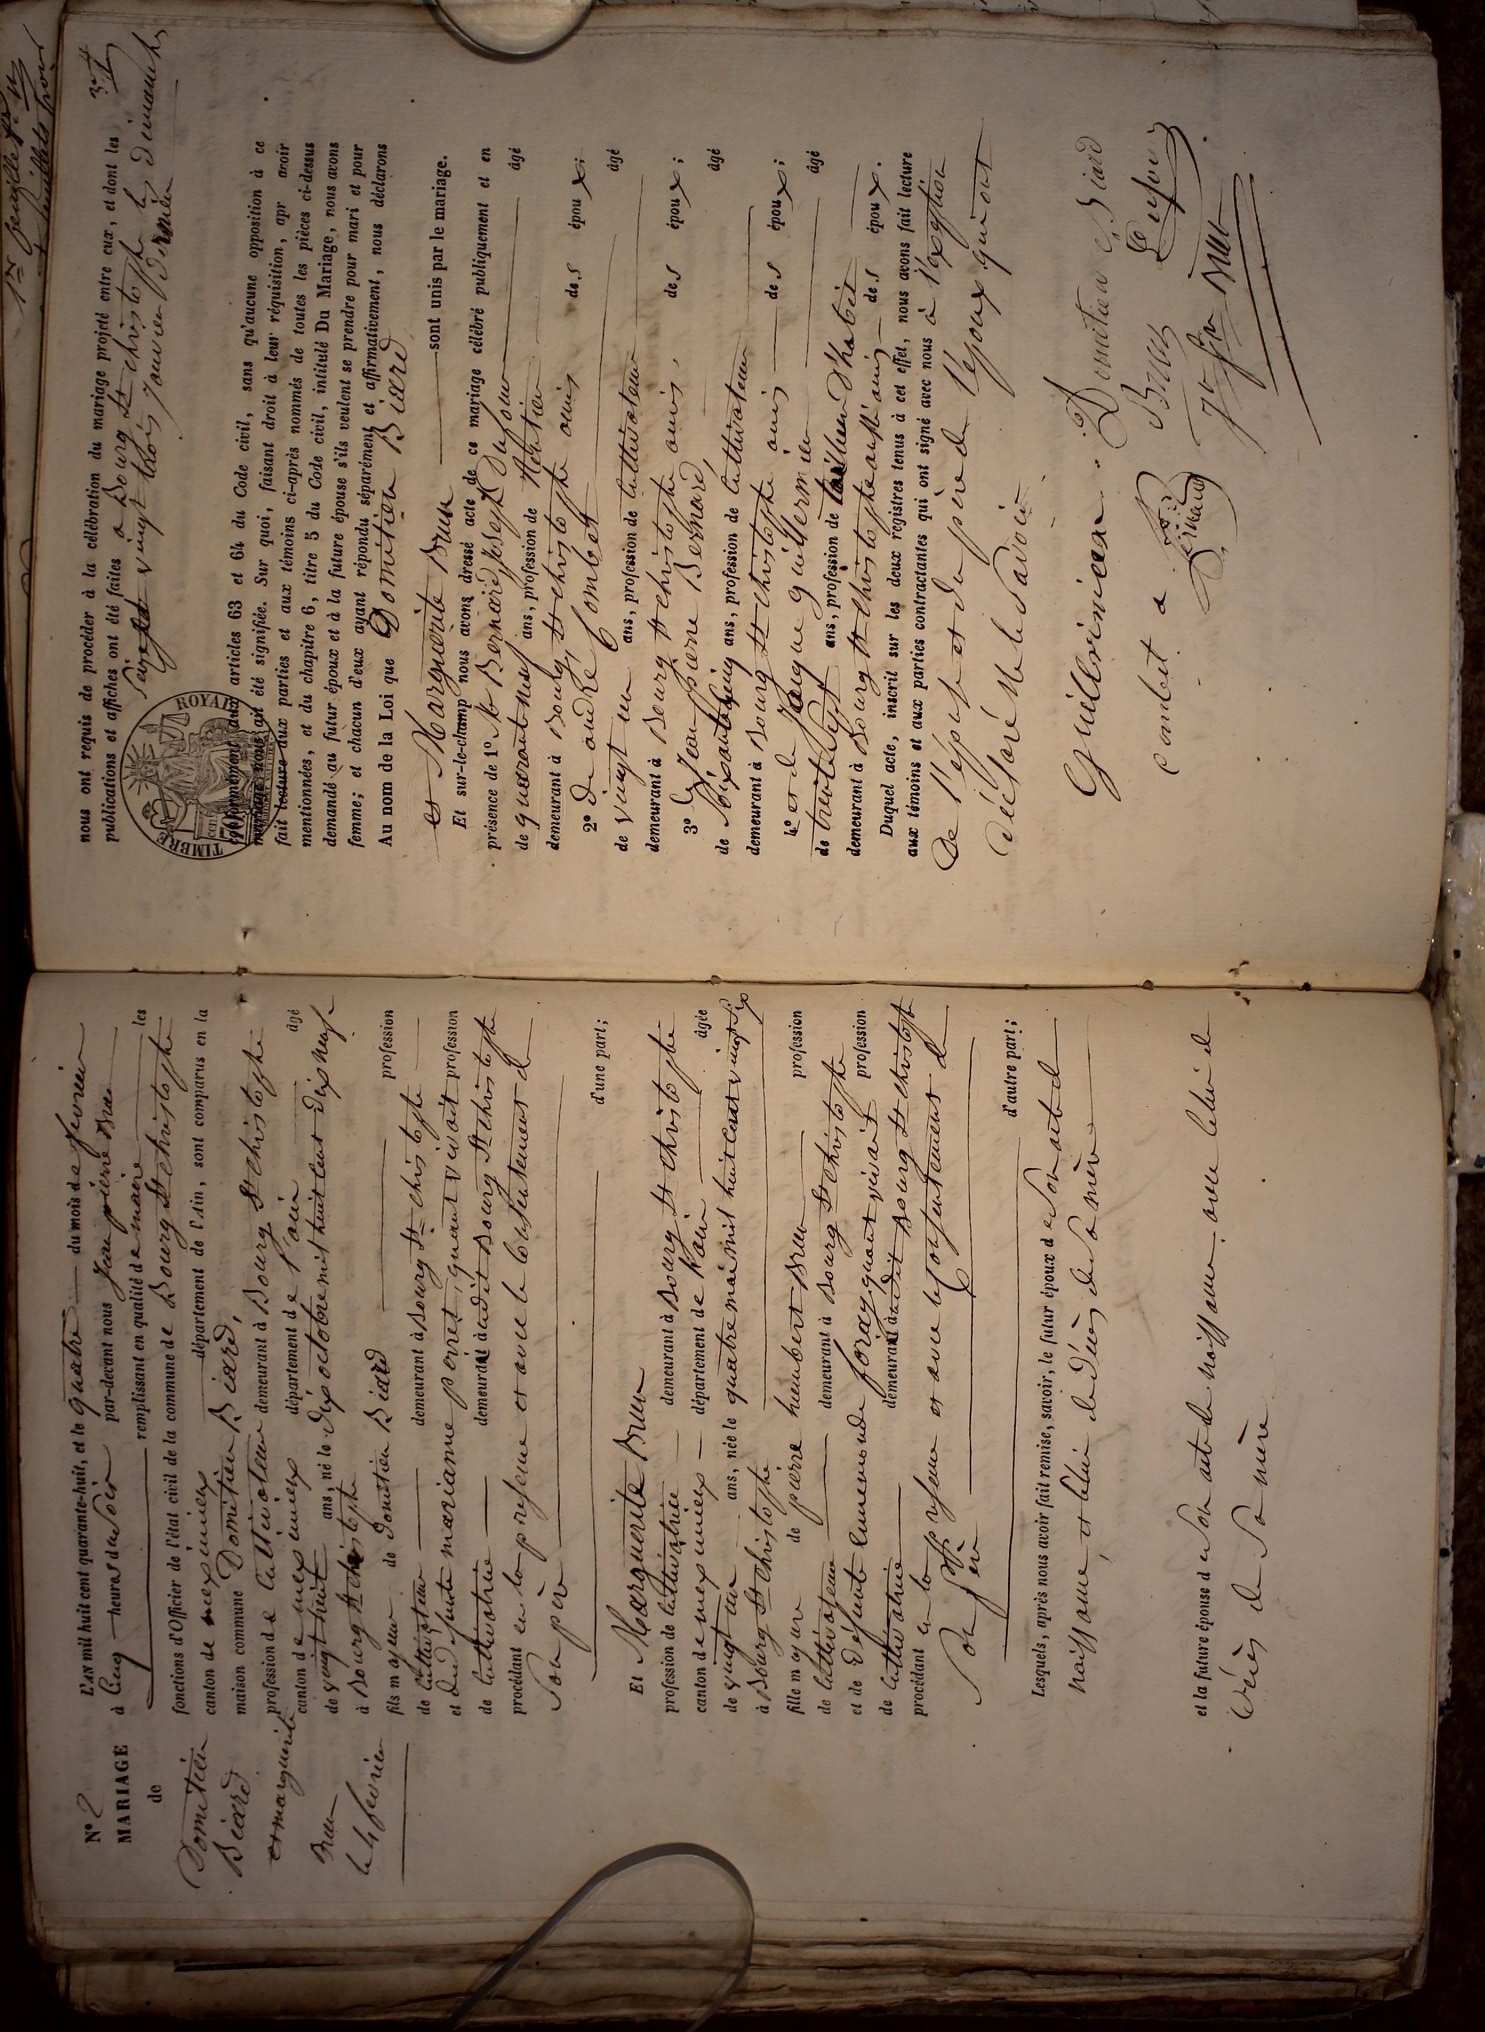 N° 2
MARIAGE
de
Domitien
Béard
et marguerite
Brun
le 4 fevrier
L'AN mil huit cent quarante-huit, et le quatre du mois de fevrier
à cinq heures du soir par-devant nous Jean pierre Brun
remplissant en qualité de maire les
fonctions d'Officier de l'état civil de la commune de Bourg St christophe
canton de meximieux département de l'Ain, sont comparus en la
maison commune Domitien Béard,
profession de cultivateur demeurant à Bourg St christophe
canton de meximieux département de l'ain âgé
de vingt huit ans, né le dix octobre mil huit cent dix neuf
à Bourg St christophe
fils majeur de Domitien Béard profession
de cultivateur demeurant à Bourg St christophe
et de defunte marianne perret, quant vivait profession
de cultivatrice demeurant audit Bourg St christophe
procédant en la presence et avec le consentement de
son père
d'une part;
Et Marguerite Brun
profession de cultivatrice demeurant à Bourg St christophe
canton de meximieux département de l'ain âgée
de vingt un ans, née le quatre mai mil huit cent vingt six
à Bourg St christophe
fille majeure de pierre humbert Brun profession
de cultivateur demeurant à Bourg St christophe
et de défunte Ennemonde foray quant vivait profession
de cultivatrice demeurant audit Bourg St christophe
procédant en la presence et avec le consentement de
son père
d'autre part;
Lesquels, après nous avoir fait remise, savoir, le futur époux de son acte de
naissance, et celui de décès de sa mère
et la future épouse de son acte de naissance avec celui de
décès de sa mère
nous ont requis de procéder à la célébration du mariage projeté entre eux, et dont les
publications et affiches ont été faites à Bourg St christophe les dimanches
seize et vingt trois janvier dernier
TIMBRE ROYAL
conformément aux articles 63 et 64 du Code civil, sans qu'aucune opposition à ce
mariage nous ait été signifiée. Sur quoi, faisant droit à leur réquisition, apr avoir
fait lecture aux parties et aux témoins ci-après nommés de toutes les pièces ci-dessus
mentionnées, et du chapitre 6, titre 5 du Code civil, intitulé Du Mariage, nous avons
demandé au futur époux et à la future épouse s'ils veulent se prendre pour mari et pour
femme; et chacun d'eux ayant répondu séparément et affirmativement, nous déclarons
Au nom de la Loi que Domitien Béard
et Marguerite Brun sont unis par le mariage.
Et sur-le-champ nous avons dressé acte de ce mariage célébré publiquement et en
présence de 1° Mr Bernard Joseph Dufour âgé
de quarante neuf ans, profession de
demeurant à Bourg St christophe amis des époux;
2° de andré Combet âgé
de vingt un ans, profession de cultivateur
demeurant à Bourg St christophe amis, des époux;
3° de Jean pierre Bernard, âgé
de soixante cinq ans, profession de cultivateur
demeurant à Bourg St christophe amis des époux;
4° et de Jaque guillermin âgé
de trente sept ans, profession de tailleur d'habits
demeurant à Bourg St christophe aussi amis des époux.
Duquel acte, inscrit sur les deux registres tenus à cet effet, nous avons fait lecture
aux témoins et aux parties contractantes qui ont signé avec nous à l'exception
De l'épouse et du père de l'époux qui ont
déclaré ne le savoir
Domitien Béard
Brun Dufour
combet a